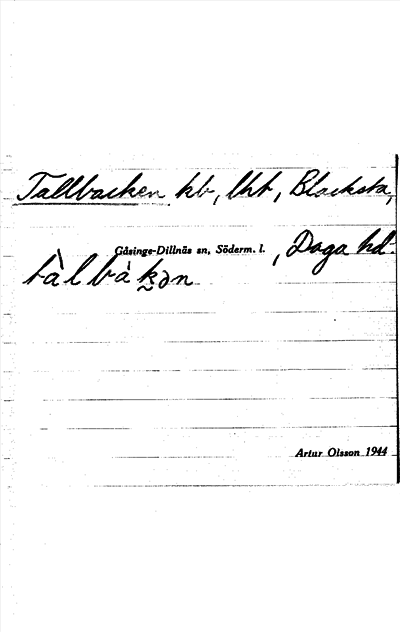 Tallbacken kb, lht, Blacksta,
Gåsinge-Dillnäs sn, Söderm. l. , Daga hd.
tàlbákən
Artur Olsson 1944